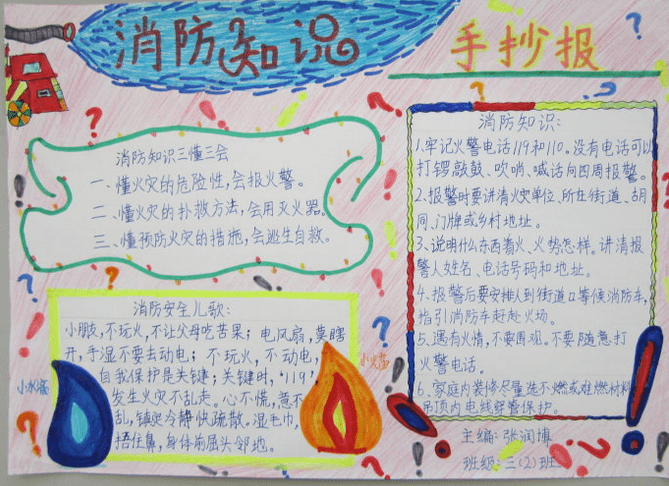 消防知识
手抄报
消防知识三懂三会
一、懂火灾的危险性,会报火警。
二、懂火灾的扑救方法,会用灭火器。
三、懂预防火灾的措施,会逃生自救。
消防安全儿歌:
小朋友,不玩火,不让父母吃苦果;电风扇,莫瞎
开,手湿不要去动电;不玩火,不动电,
自我保护是关键;关键时,“119”,
发生火灾不乱走。心不慌,意不
乱,镇定冷静快疏散。湿毛巾,
捂住鼻,身体前屈头邻地。
小水滴
小火苗
消防知识:
1.牢记火警电话119和110。没有电话可以
打锣敲鼓、吹哨、喊话向四周报警。
2.报警时要讲清火灾单位、所在街道、胡
同、门牌或乡村地址。
3、说明什么东西着火、火势怎样。讲清报
警人姓名、电话号码和地址。
4、报警后要安排人到街道口等候消防车,
指引消防车赶赴火场。
5、遇有火情,不要围观。不要随意打
火警电话。
6、家庭内装修尽量选不燃或难燃材料
吊顶内电线穿管保护。
主编:张润博
班级:三(2)班